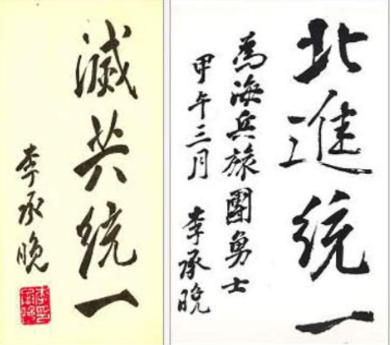 滅共統一
李承晚
北進統一
為海兵旅團勇士
甲午三月 李承晚